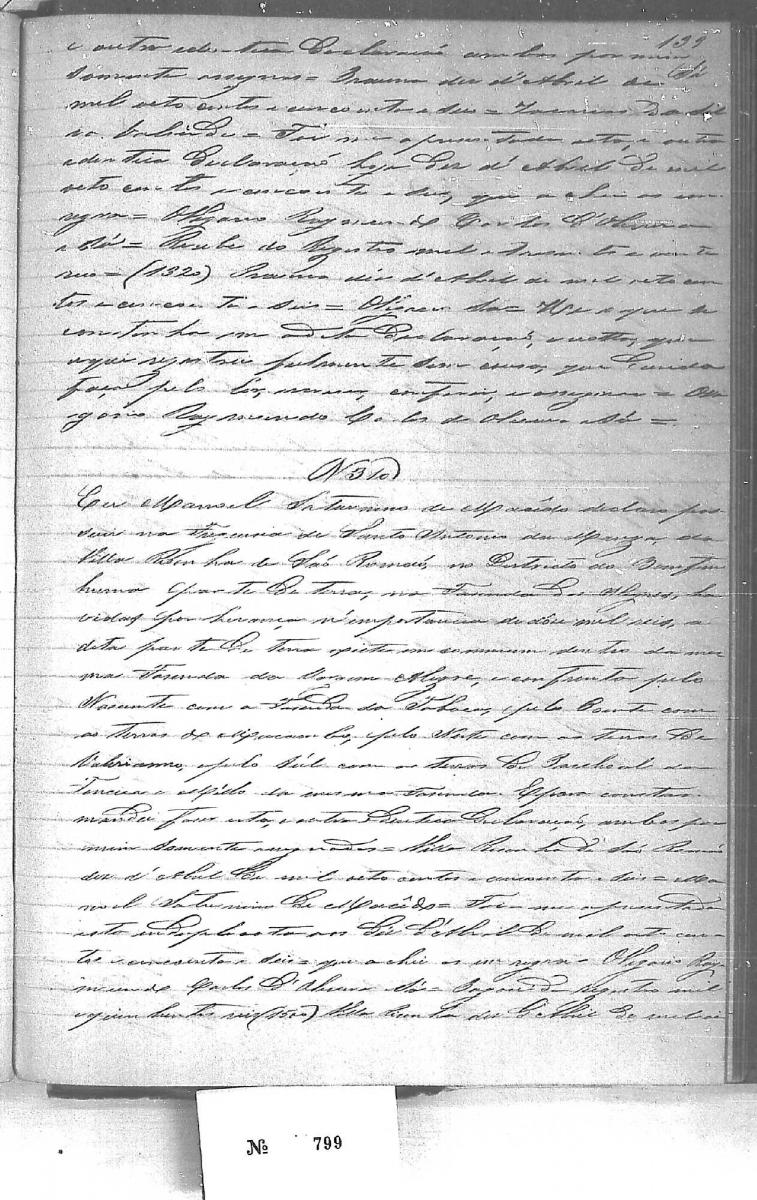 139
e outra identica Declaração ambas por mim
Sá
somente assignas = dez d'Abril de
mil oito centos e cincoenta e seis =
= Foi me apresentada esta, e outra
identica Declaração hoje Dez d'Abril De mil
oito centos e cincoenta e seis, que achei as em
regra = Olegario Raymundo Carlos D'Oliveira
e Sá = Recebi do Registro mil e trezentos e vinte
reis = (1320) dez d'Abril de mil oito cen
tos e cincoenta e seis = Olegario Sá = He o que se
continha em a dita Declaração, e nota, que
aqui registrei fielmente sem cousa, que duvida
faça pelo ler, conferi, e assignei = Ole
gario Raymundo Carlos de Oliveira e Sá =
N 310
Eu Manoel Saturnino de Macêdo declaro pos
suir na Freguesia de Santo Antonio da Manga da
Villa Risonha de São Romão, no Districto do Bomfim
huma parte De terras, na Fazenda ha
vidas por herança n'importancia de dôse mil reis, a
dita parte De terra existe em commum dentro da mes
ma Fazenda da Vargem Alegre, e confronta pelo
Nascente com a Fazenda da pelo Poente com
as terras do Macambo, e pelo Norte com as terras De
Valeriano, e pelo Sul com as terras De Paschoal da
da mesma Fazenda E para constar
mandei faser esta, e outra Identica Declaração, ambas por
mim somente assignadas = Villa Risonha De São Romão
dez d'Abril De mil oito centos e cincoenta e seis = Ma
noel Saturnino De Macêdo = Foi me apresentada
esta em duplicata aos Dez d'Abril De mil oito cen
tos e cincoenta e seis = que achei as em regra = Olegario Ray
mundo Carlos D'Oliveira e Sá = do Registro mil
e quinhentos reis (1500) Villa Risonha dez d'Abril De mil oi
№ 799